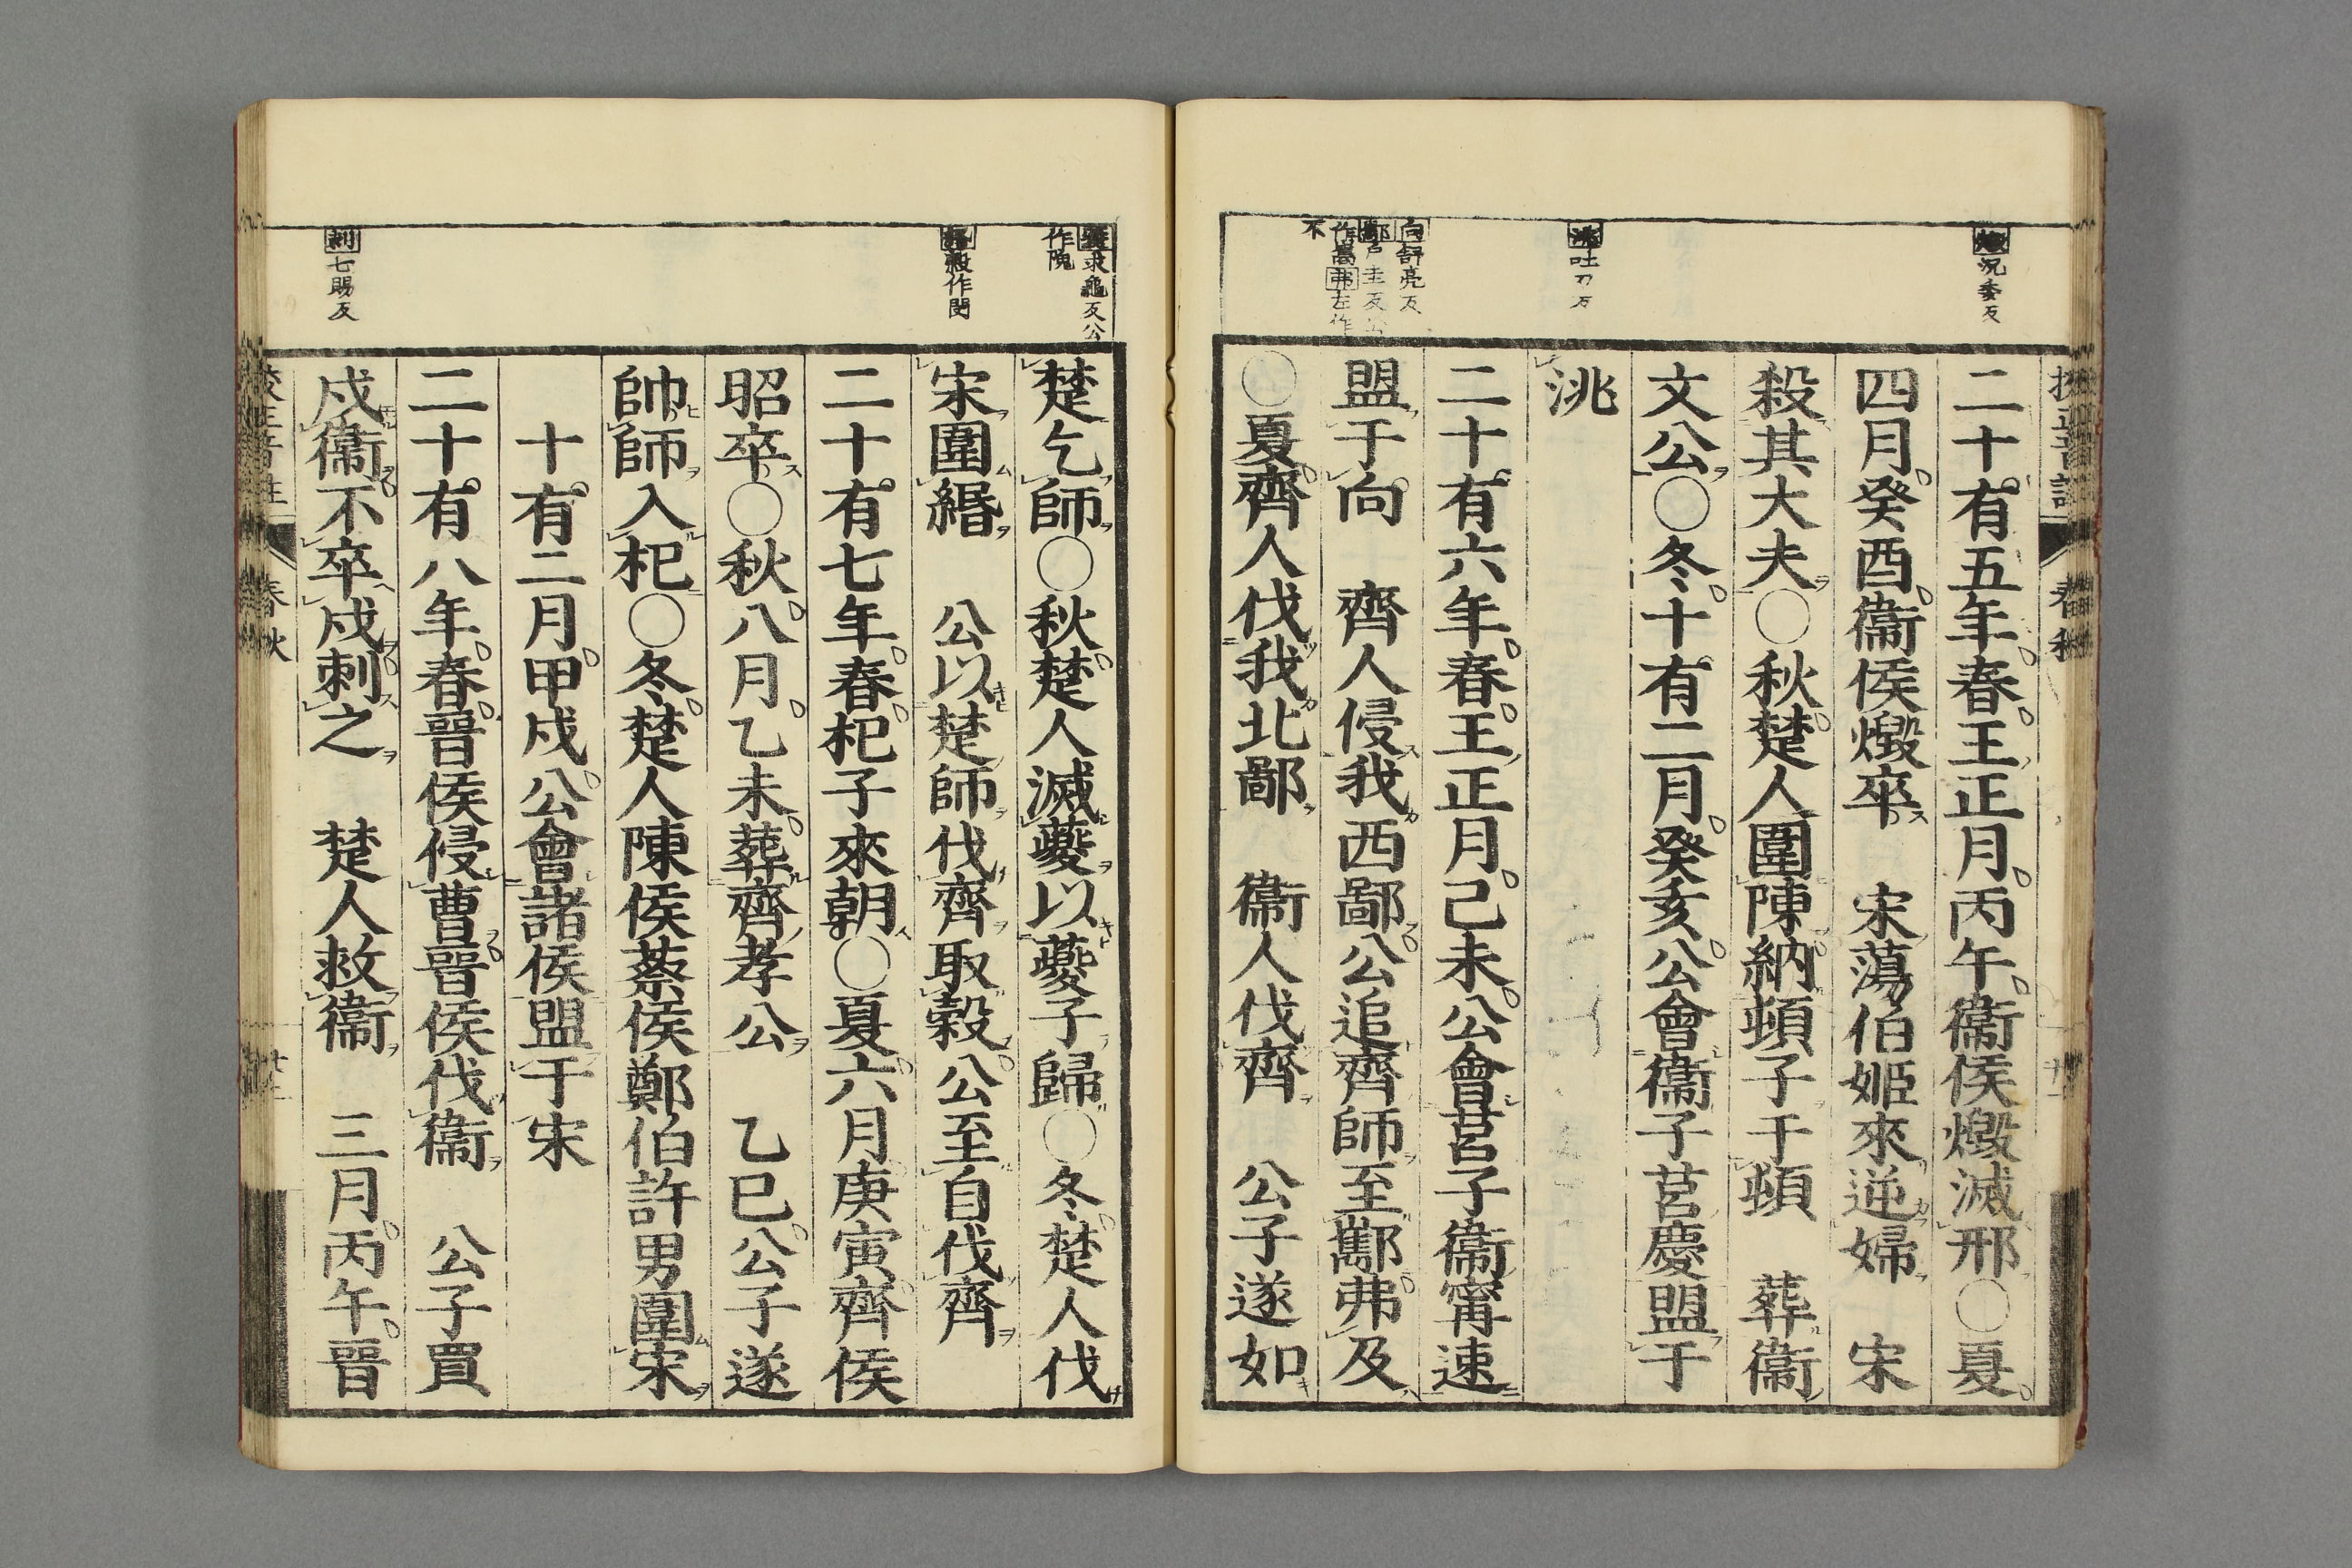 二十有五年春王正月丙午衞侯燬滅邢○夏
四月癸酉衞侯燬卒　宋蕩伯姬來逆婦　宋
殺其大夫○秋楚人圍陳納頓子于頓　葬衞
文公○冬十有二月癸亥公會衞子莒慶盟于
洮
二十有六年春王正月己未公會莒子衞甯速
盟于向　齊人侵我西鄙公追齊師至酅弗及
○夏齊人伐我北鄙　衞人伐齊　公子遂如
燬況委反
洮吐刀反
向舒亮反
酅戶圭反公
作巂弗左作
不
春秋
楚乞師○秋楚人滅夔以夔子歸○冬楚人伐
宋圍緡　公以楚師伐齊取穀公至自伐齊
二十有七年春杞子來朝○夏六月庚寅齊侯
昭卒○秋八月乙未葬齊孝公　乙巳公子遂
帥師入杞○冬楚人陳侯蔡侯鄭伯許男圍宋
十有二月甲戌公會諸侯盟于宋
二十有八年春晉侯侵曹晉侯伐衞　公子買
戍衞不卒戍刺之　楚人救衞　三月丙午晉
夔求龜反公
作隗
緡穀作閔
刺七賜反
校正音註　春秋